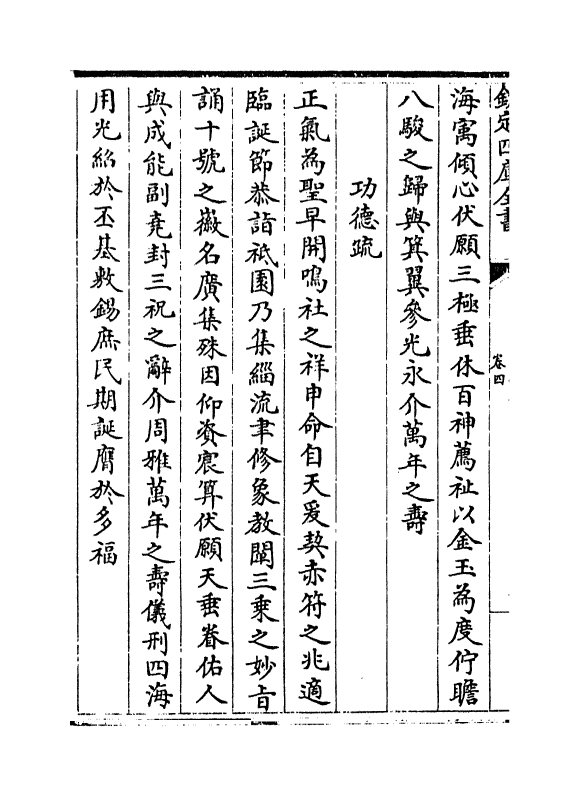 欽定四庫全書
卷四
海㝢傾心伏願三極垂休百神薦祉以金玉為度佇瞻
八駿之歸與箕翼參光永介萬年之壽
功德疏
正氣為聖早開鳴社之祥申命自天爰契赤符之兆適
臨誕節恭詣祇園乃集緇流聿修象教闡三乗之妙㫖
誦十號之嶶名廣集殊因仰資宸算伏願天垂眷佑人
與成能副堯封三祝之辭介周雅萬年之壽儀刑四海
用光紹於丕基敷錫庶民期誕膺於多福